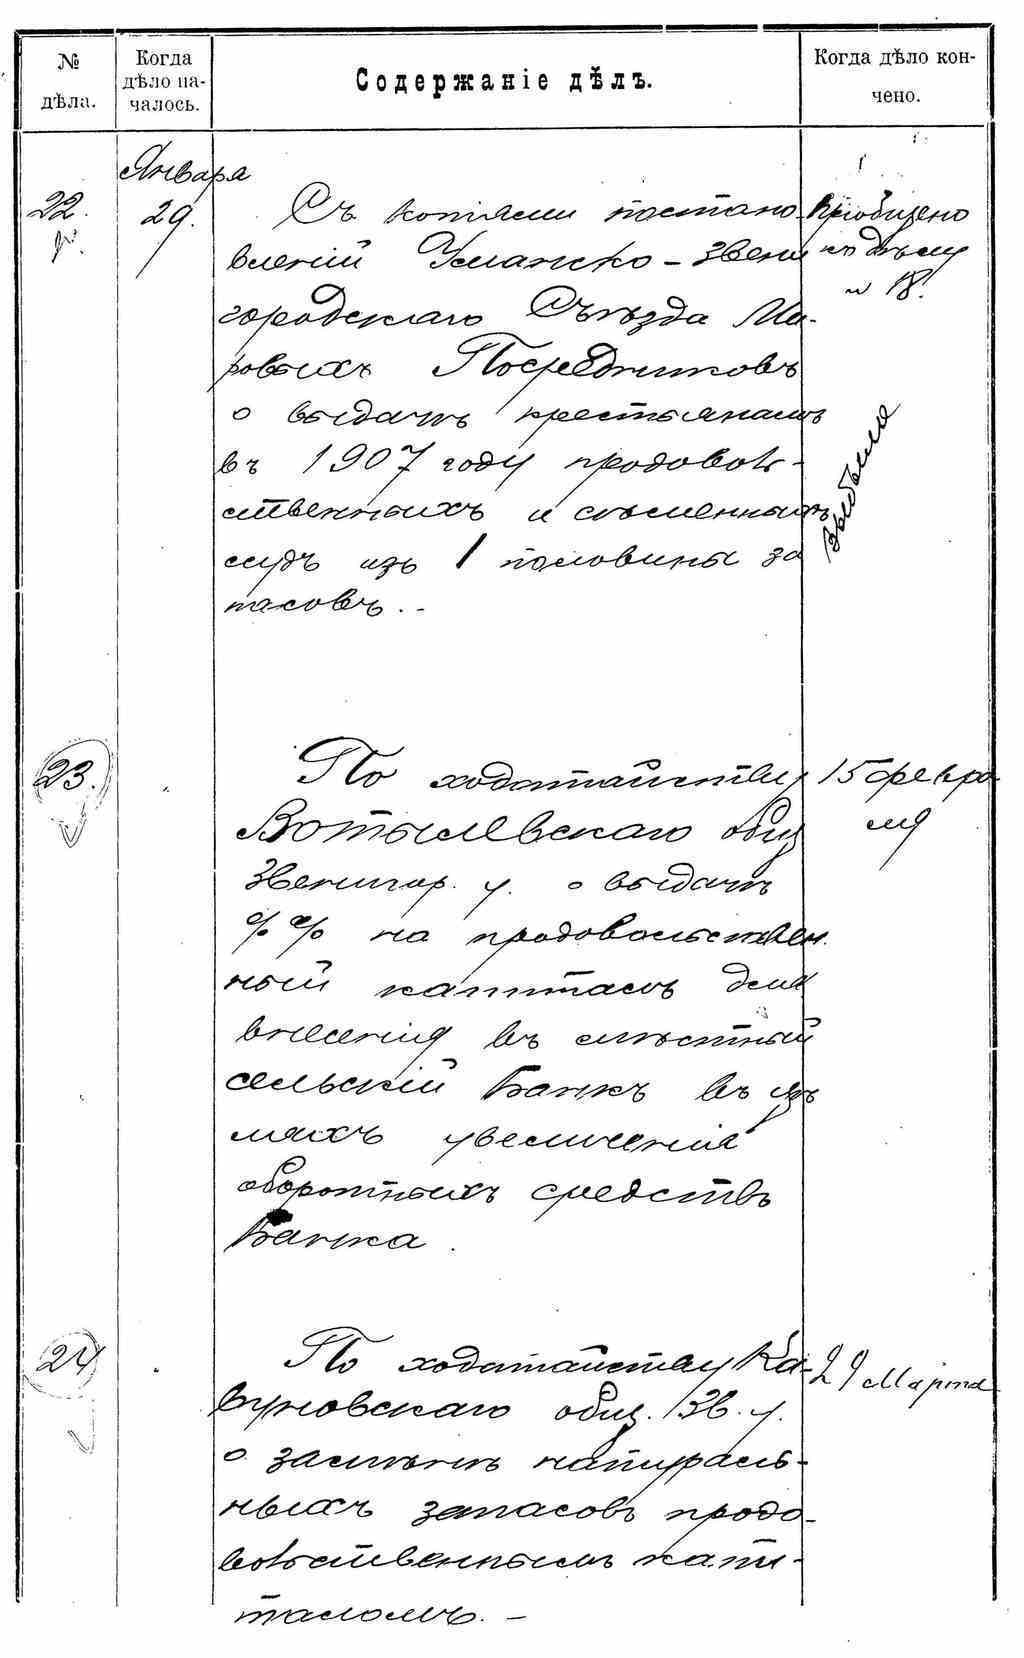 № дѣла.
Когда дѣло на-
чалось.
Содержаніе дѣлъ.
Когда дѣло кон-
чено.
Января
22.
29.
Съ копіями постано-
вленій Уманско-Звени
городскаго Съѣзда Ми-
ровыхъ Посредниковъ
о выдачѣ крестьянамъ
въ 1907 году продоволь-
ственныхъ и сѣменныхъ
ссудъ изъ 1 половины за
пасовъ.
Пріобщено
къ дѣлу
№ 18.
выбыло
23.
По ходатайству
Вотылевскаго общ
Звенигор. у. о выдачѣ
%% на продовольствен-
ный капиталъ для
внесенія въ мѣстный
сельскій Банкъ въ цѣ
ляхъ увеличенія
оборотныхъ средствъ
Банка.
15 февра
ля
24
По ходатайству Ка-
вуновскаго общ. Зв. у.
о замѣнѣ натураль-
ныхъ запасовъ продо-
вольственнымъ капи-
таломъ. –
29 Марта